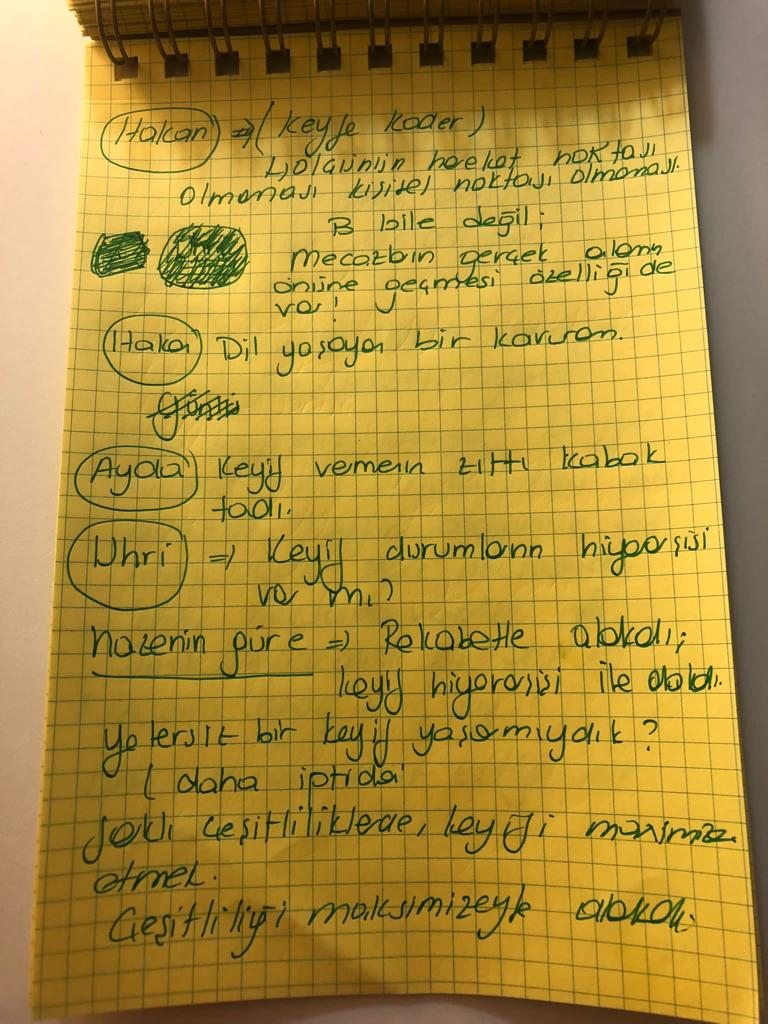 Hakan => (Keyfe Kader)
L) olgunun hareket noktası
olmaması kişisel noktası olmaması.
B bile değil;
mecazbın gerçek alanın
önüne geçmesi özelliği de
var!
Hakan Dil yaşayan bir kavram.
Ayola Keyif vermenin zıttı kabak
tadı.
Uhri => Keyif durumların hiyerarşisi
var mı?
nazenin güre => Rekabetle alakalı;
keyif hiyerarşisi ile alakalı.
yetersiz bir keyif yaşamıydık?
( daha iptidai
farklı çeşitliliklerde, keyfi maximize
etmek.
Çeşitliliği maksimizeyle alakalı.